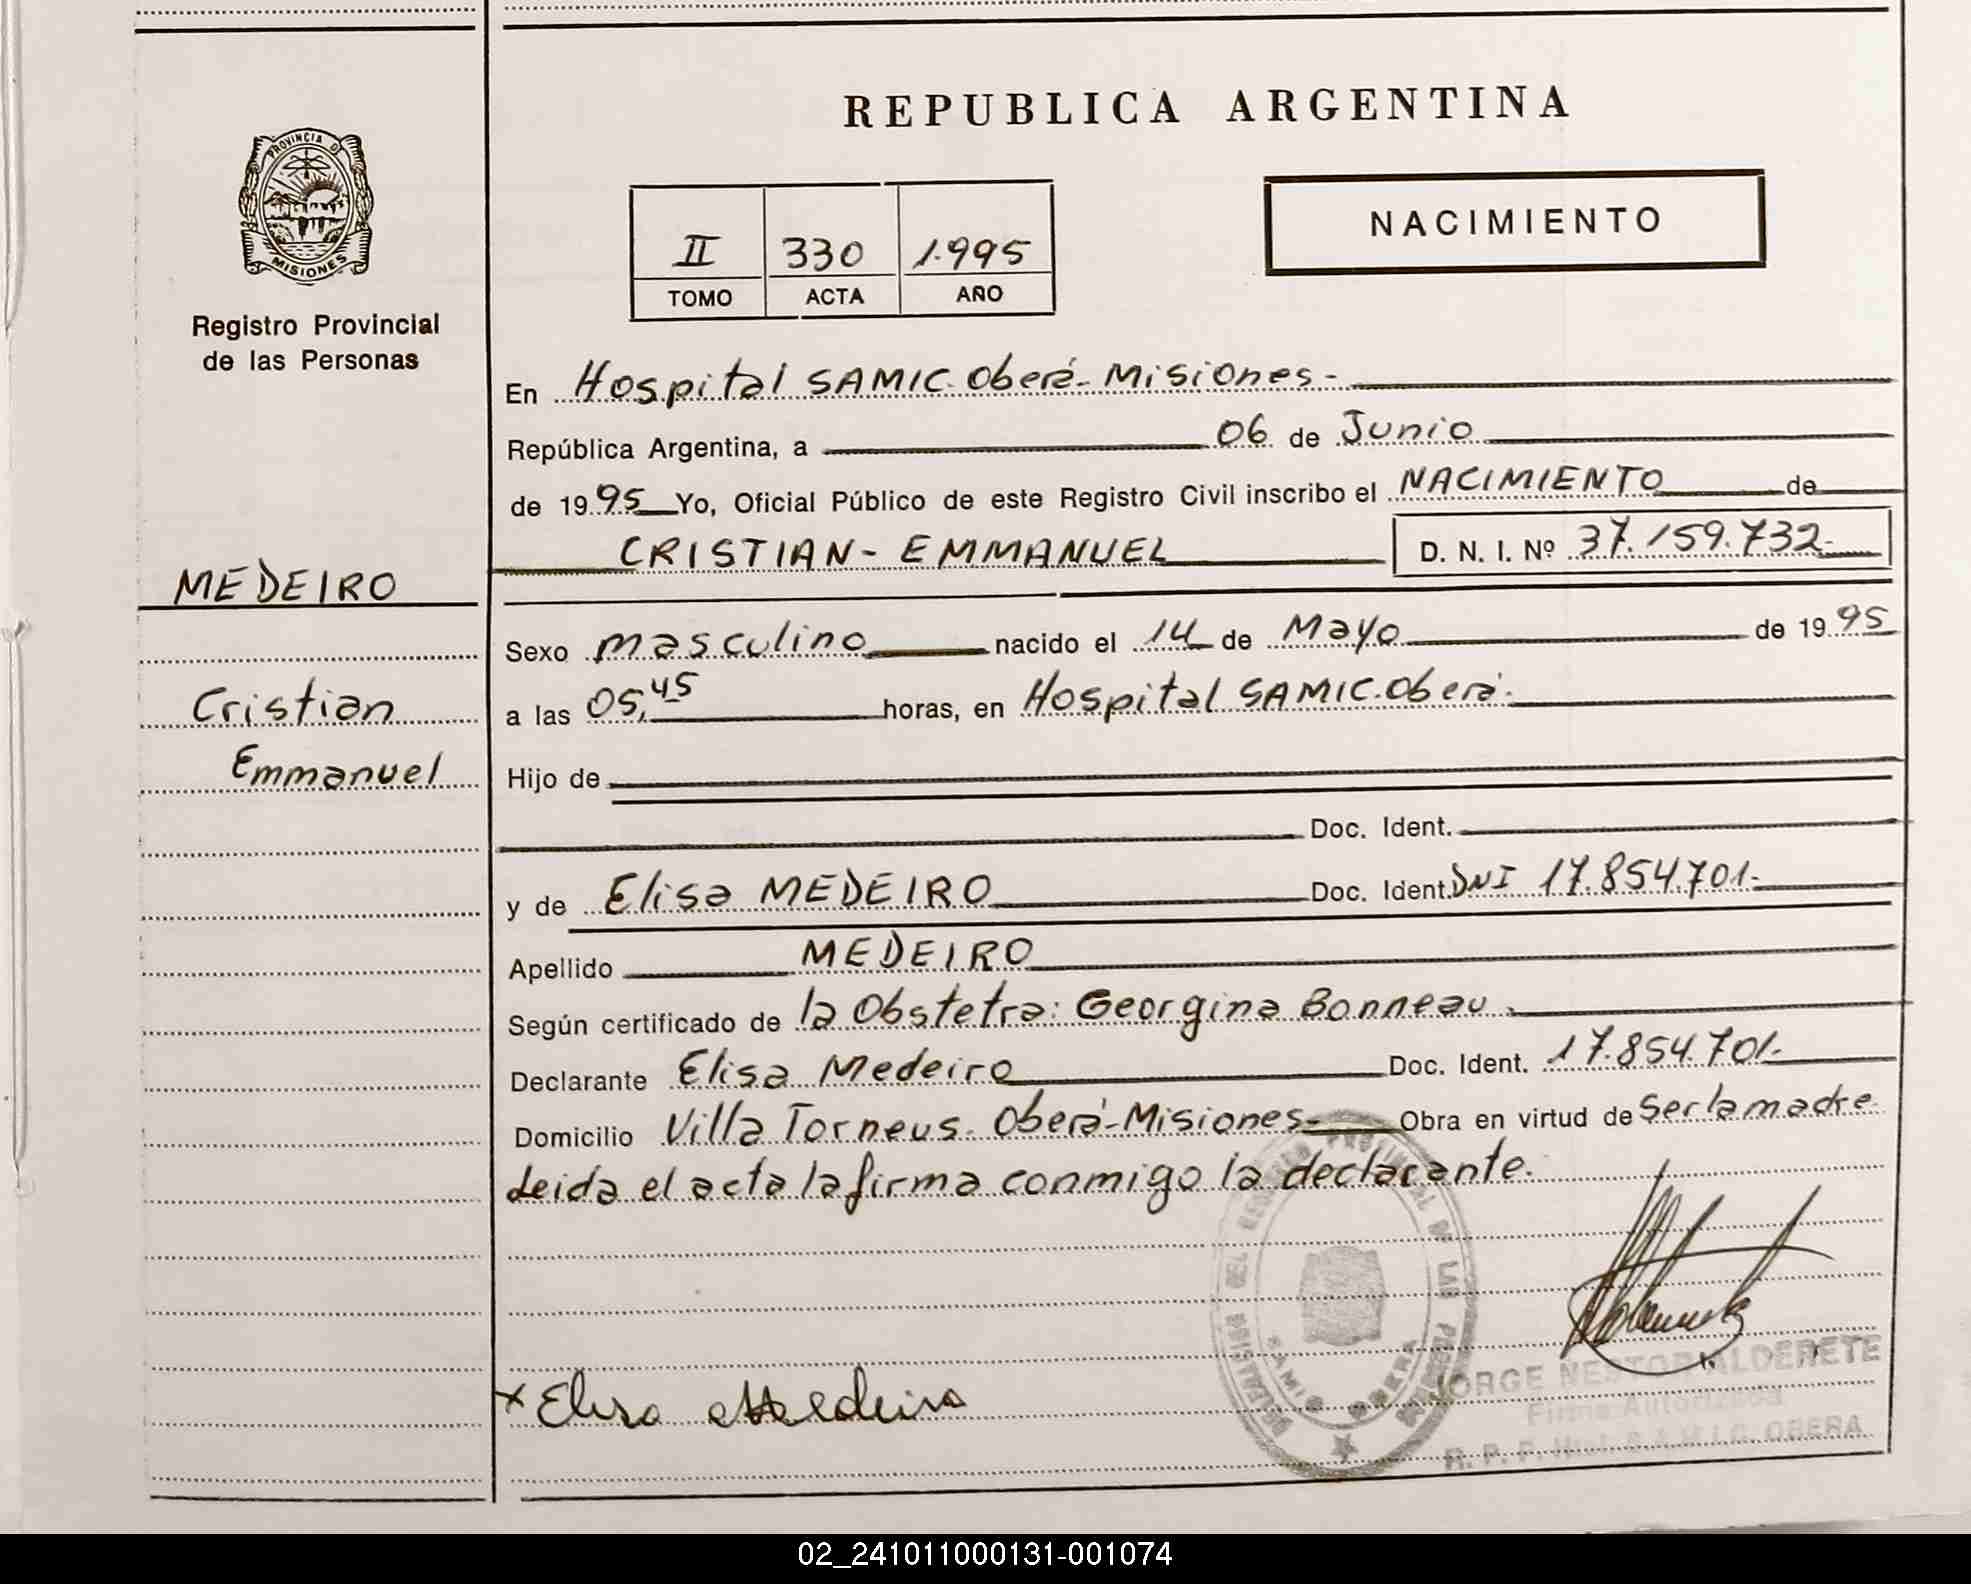 PROVINCIA DE
MISIONES
Registro Provincial
de las Personas
MEDEIRO
Cristian
Emmanuel
REPUBLICA ARGENTINA
II 330 1.995
TOMO ACTA AÑO
NACIMIENTO
En Hospital SAMIC. Oberá- Misiones-
República Argentina, a 06 de Junio
de 1995 Yo, Oficial Público de este Registro Civil inscribo el NACIMIENTO de
CRISTIAN- EMMANUEL D. N. I. Nº 37.159.732-
Sexo masculino nacido el 14 de Mayo de 1995
a las 05,45 horas, en Hospital SAMIC. Oberá.
Hijo de
Doc. Ident.
y de Elisa MEDEIRO Doc. Ident. DNI 17.854.701.-
Apellido MEDEIRO
Según certificado de la Obstetra: Georgina Bonneau.
Declarante Elisa Medeiro Doc. Ident. 17.854.701.-
Domicilio Villa Torneus. Oberá-Misiones- Obra en virtud de Ser la madre
Leida el acta la firma conmigo la declarante.
REGISTRO PROVINCIAL DE LAS PERSONAS
SAMIC OBERA
x Elisa Medeiro
JORGE NESTOR ALDERETE
Firma Autorizada
R. P. P. Htal. S.A.M.I.C. OBERA
02_241011000131-001074